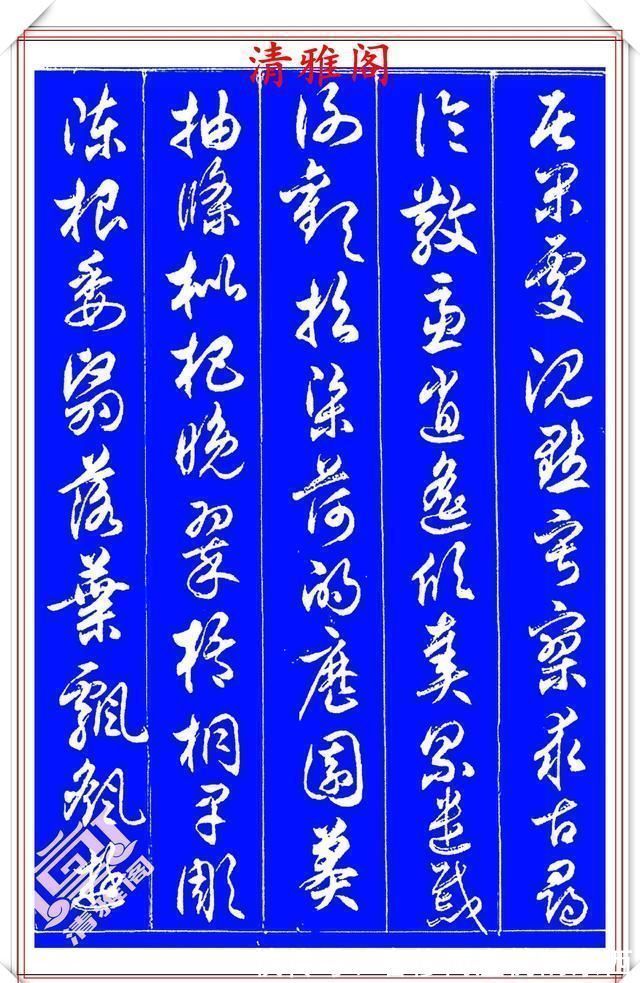 清雅阁
居閑處沉默寂寥求古尋
論散慮逍遙欣奏累遣慼
謝歡招渠荷的歷園莽
抽條枇杷晚翠梧桐早彫
陳根委翳落葉飄颻遊
清雅阁